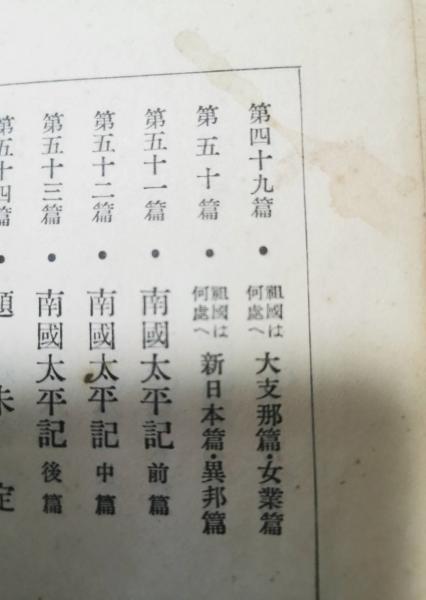 第四十九篇 • 祖國は何處へ 大支那篇・女業篇
第五十篇 • 祖國は何處へ 新日本篇・異邦篇
第五十一篇 • 南國太平記 前篇
第五十二篇 • 南國太平記 中篇
第五十三篇 • 南國太平記 後篇
第五十四篇 • 題未定